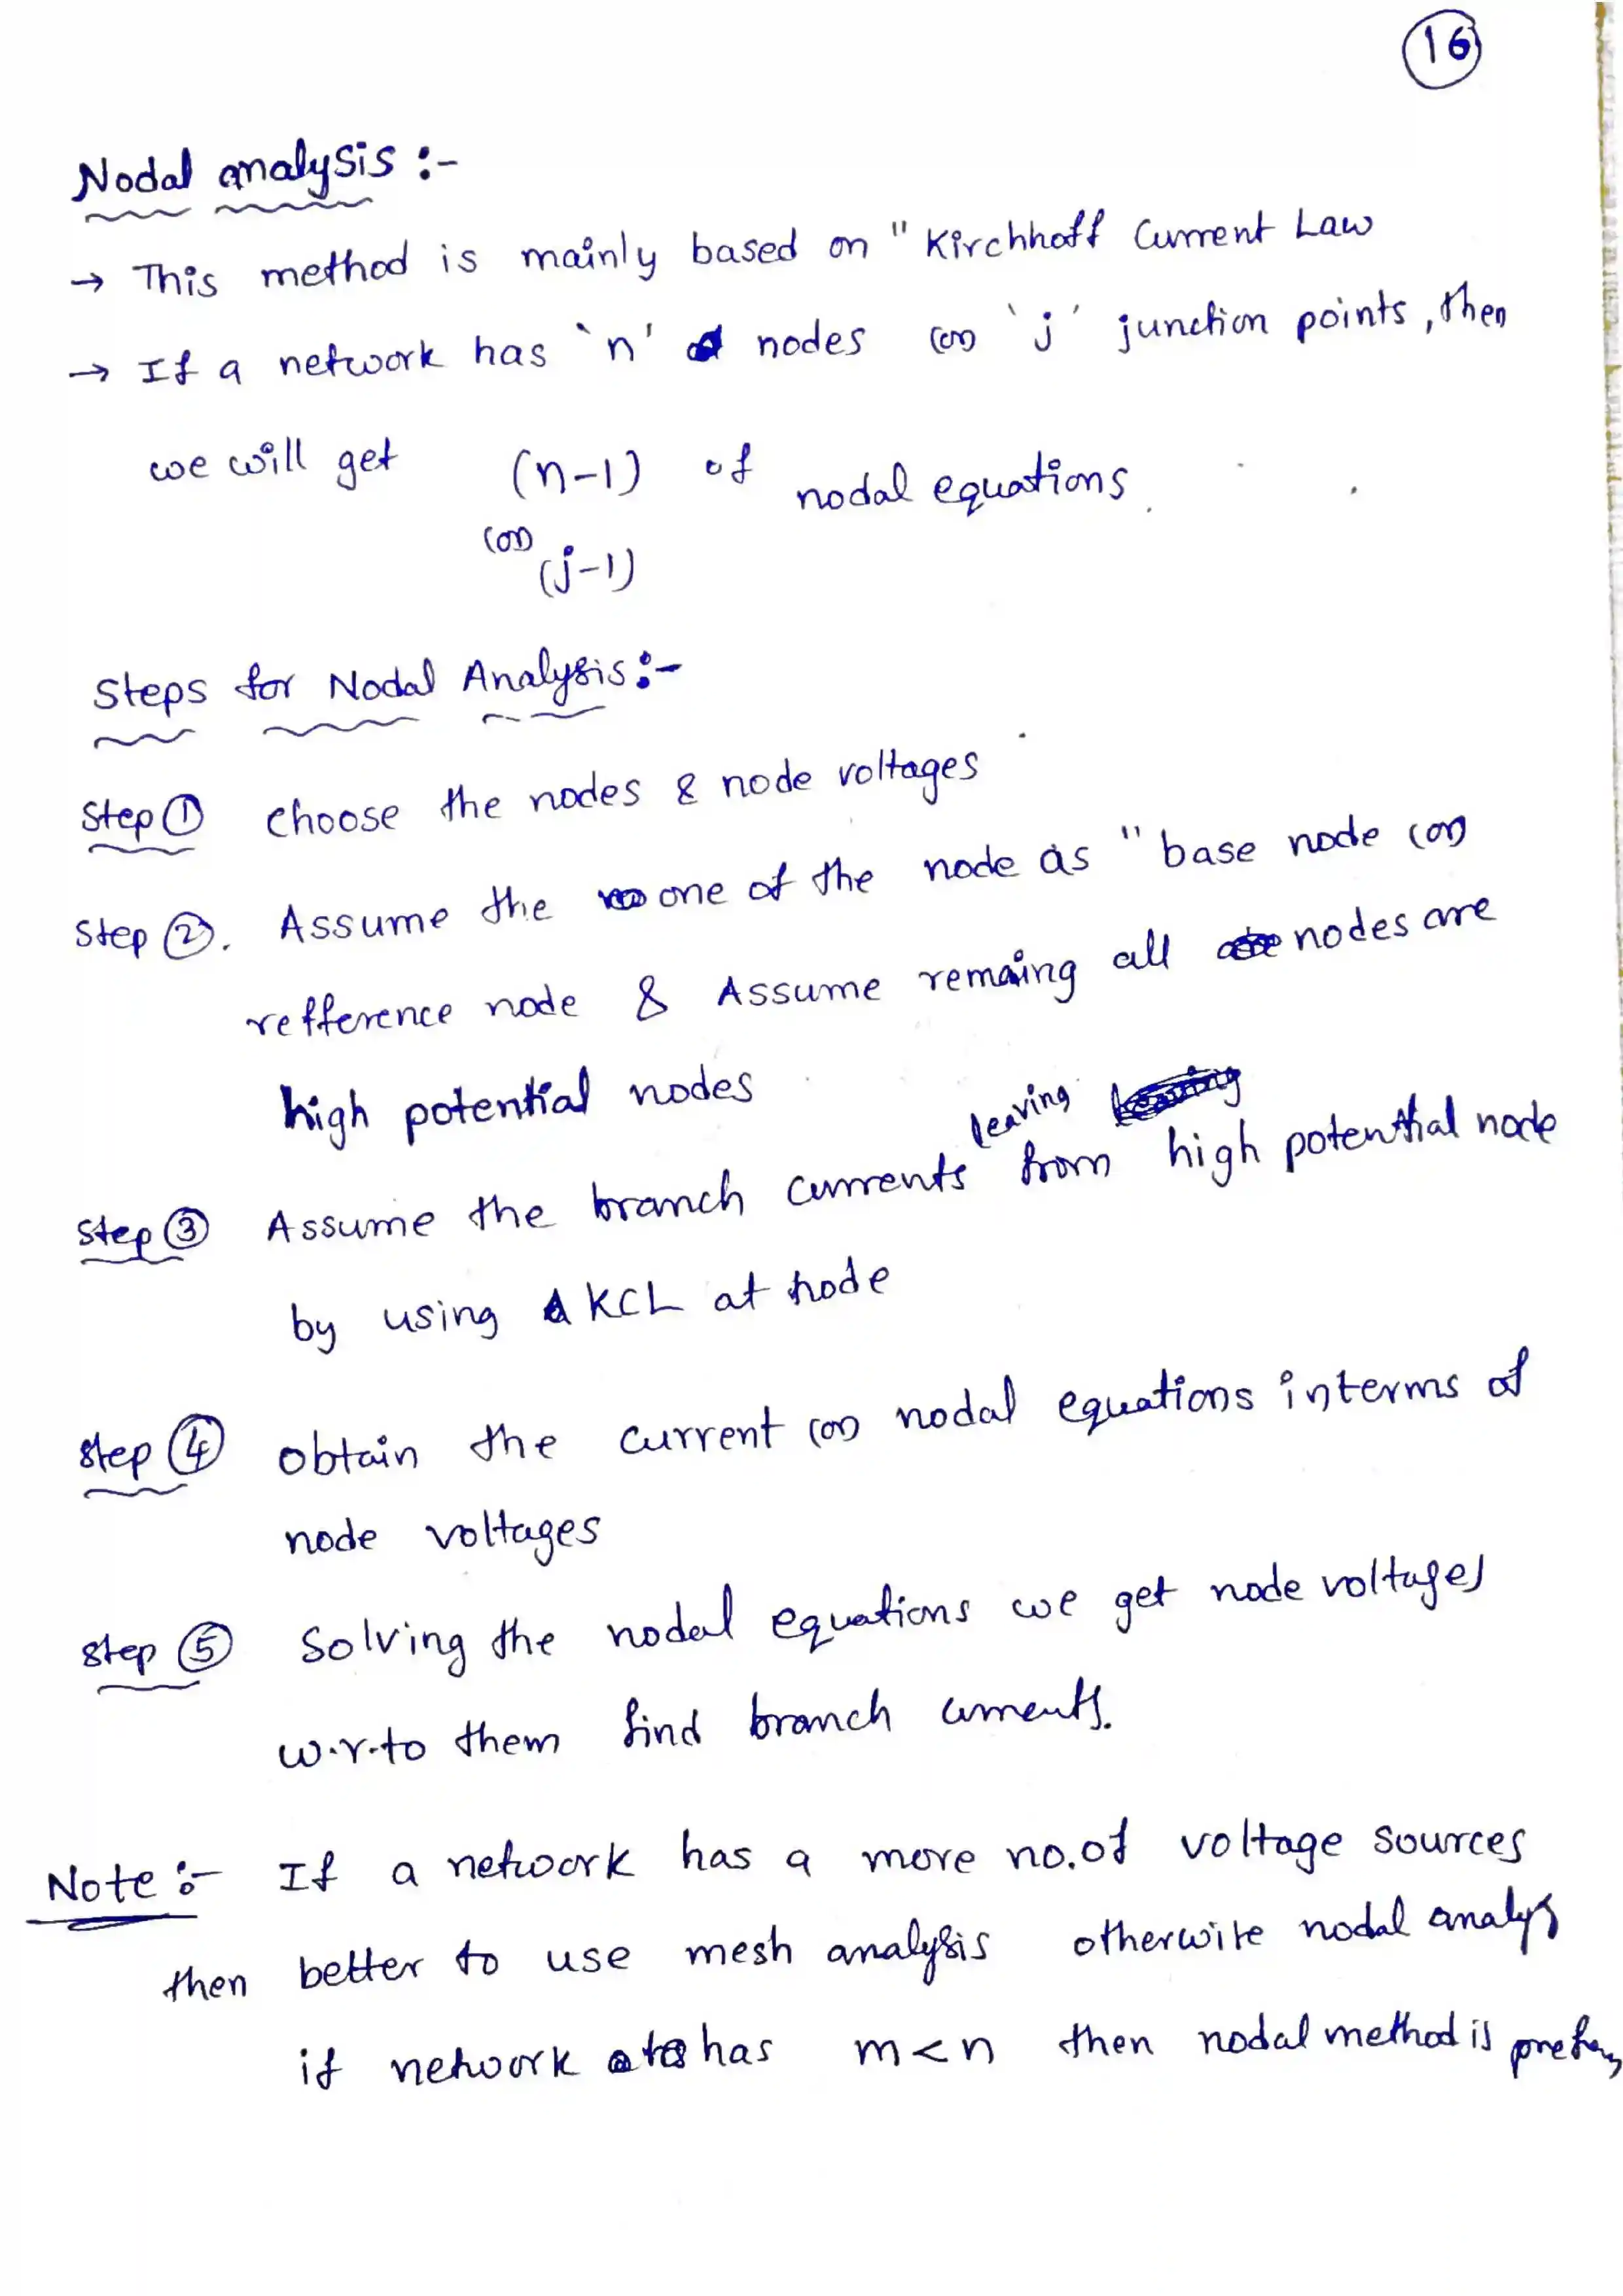 16
Nodal analysis :-
→ This method is mainly based on " Kirchhoff Current Law
→ If a network has `n' nodes (or) `j' junction points, then
we will get (n-1) of nodal equations.
(or) (j-1)
Steps for Nodal Analysis:-
Step ① choose the nodes & node voltages
Step ②. Assume the one of the node as " base node (or)
refference node & Assume remaing all nodes are
high potential nodes
leaving
Step ③ Assume the branch currents from high potential node
by using KCL at node
Step ④ obtain the current (or) nodal equations interms of
node voltages
Step ⑤ Solving the nodal equations we get node voltages
w.r.to them find branch currents.
Note :- If a network has a more no.of voltage sources
then better to use mesh analysis otherwise nodal analys
if network has m<n then nodal method is